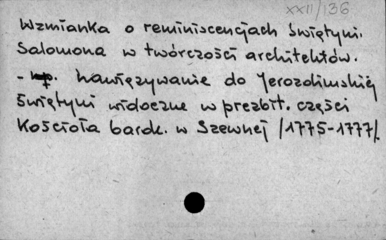 XXII/136
Wzmianka o reminiscencjach świątyni
Salomona w twórczości architektów.
- np. nawiązywanie do Jerozolimskiej
świątyni widoczne w prezbit. części
Kościoła barok. w Szewnej /1775-1777/.